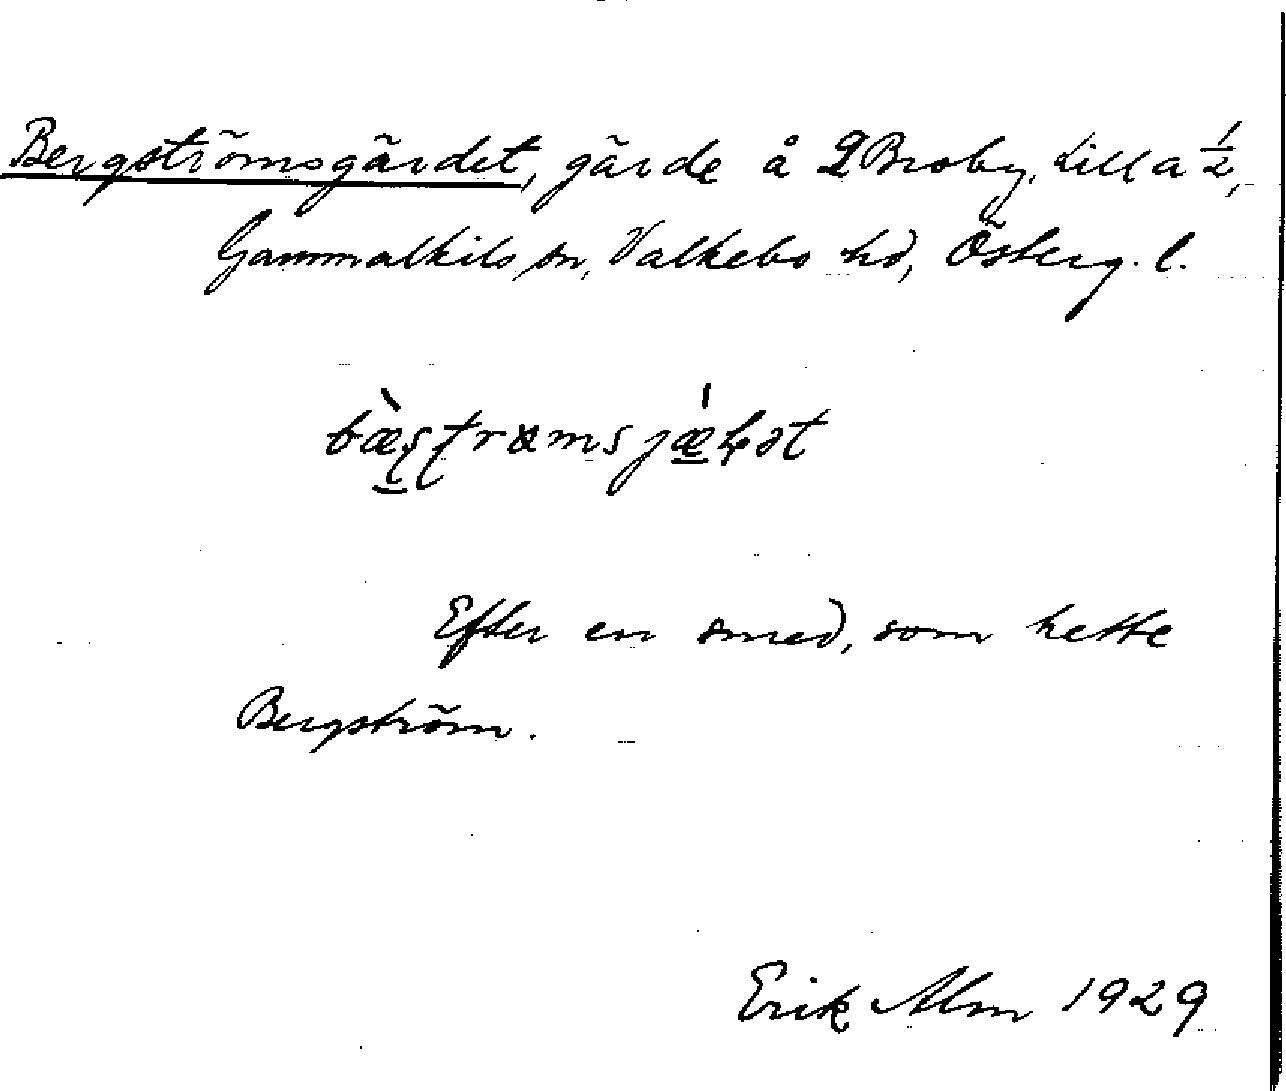 Bergströmsgärdet, gärde å Broby, Lilla ½,
Gammalkils sn, Valkebo hd, Österg. l.
Efter en smed, som hette
Bergström.
Erik Alm 1929